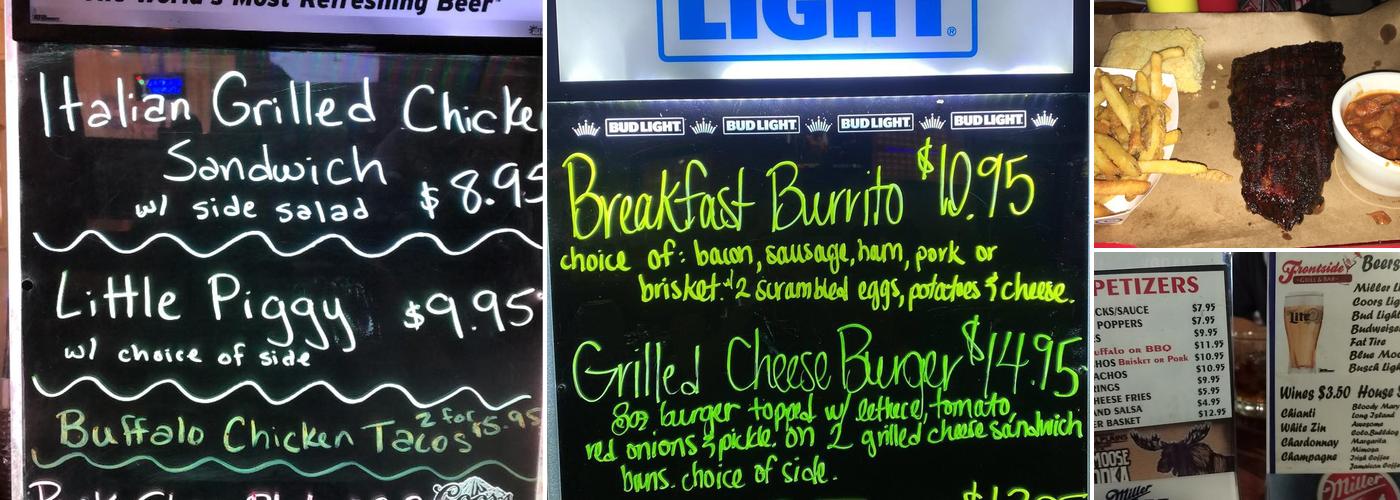 World's Most Refreshing Beer
Italian Grilled Chicke
Sandwich
w/ side salad $8.95
Little Piggy $9.95
w/ choice of side
Buffalo Chicken Tacos 2 for $5.95
LIGHT®
BUD LIGHT. BUD LIGHT. BUD LIGHT. BUD LIGHT.
Breakfast Burrito $10.95
choice of: bacon, sausage, ham, pork or
brisket. 2 scrambled eggs, potatoes & cheese.
Grilled Cheese Burger $14.95
8oz burger topped w/ lettuce, tomato,
red onions & pickle. on 2 grilled cheese sandwich
buns. choice of side.
PETIZERS
CKS/SAUCE $7.95
POPPERS $7.95
$9.95
uffalo or BBQ $11.95
HOS Brisket or Pork $10.95
ACHOS $10.95
RINGS $9.95
HEESE FRIES $5.95
AND SALSA $4.95
ER BASKET $12.95
MOOSE
DKA
Miller
Frontside
GRILL & BAR
Beers
Lite
Miller Li
Coors Lig
Bud Light
Budweise
Fat Tire
Blue Moo
Busch Ligh
Wines $3.50 House
Chianti
White Zin
Chardonnay
Champagne
Bloody Ma
Long Island
Awesome
Margarita
Mimosa
Irish Coffee
Jamaican Coff
Miller